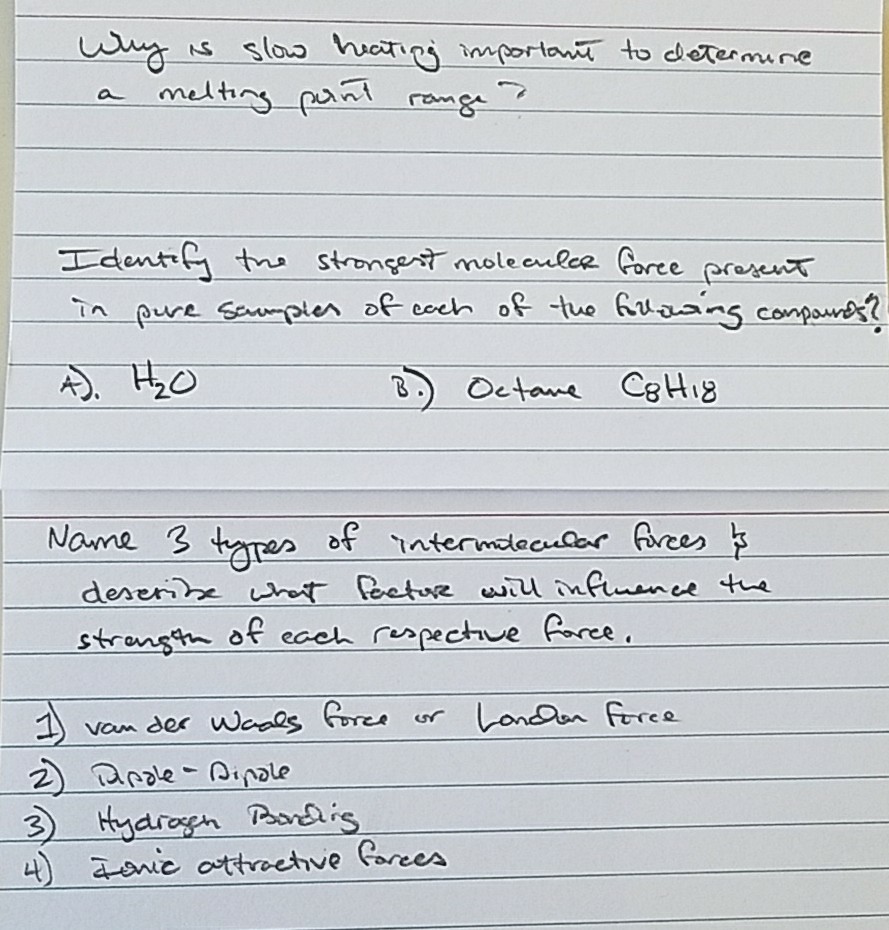 Why is slow heating important to determine
a melting point range?
Identify the strongest molecular force present
in pure samples of each of the following compounds?
A). H₂O B.) Octane C8H18
Name 3 types of intermolecular forces &
describe what factor will influence the
strength of each respective force.
1) van der Waals force or London Force
2) Dipole - Dipole
3) Hydrogen Bonding
4) Ionic attractive forces